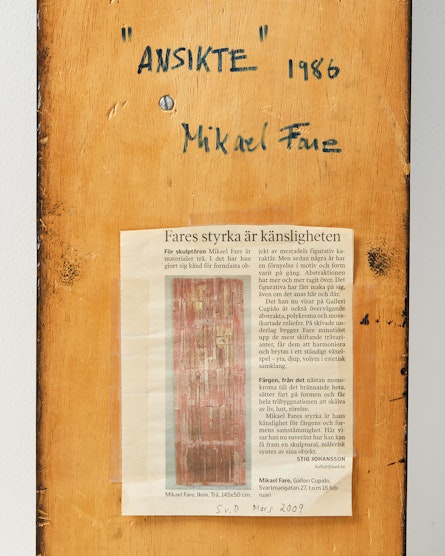 "ANSIKTE" 1986
Mikael Fare
Fares styrka är känsligheten
För skulptören Mikael Fare är
materialet trä. I det har han
gjort sig känd för formfasta ob-
jekt av mestadels figurativ ka-
raktär. Men sedan några år har
en förnyelse i motiv och form
varit på gång. Abstraktionen
har mer och mer tagit över. Det
figurativa har fått maka på sig,
även om det anas här och där.
Det han nu visar på Galleri
Cupido är också övervägande
abstrakta, polykroma och mosa-
ikartade reliefer. På skivade un-
derlag bygger Fare minutiöst
upp de mest skiftande trävari-
anter, får dem att harmoniera
och brytas i ett ständigt växel-
spel – yta, djup, volym i estetisk
samklang.
Färgen, från det nästan mono-
kroma till det brännande heta,
sätter fart på formen och får
hela träbyggnationen att skälva
av liv, lust, rörelse.
Mikael Fares styrka är hans
känslighet för färgens och for-
mens samstämmighet. Här vi-
sar han nu suveränt hur han kan
få fram en skulptural, målerisk
syntes av sina objekt.
STIG JOHANSSON
kultur@svd.se
Mikael Fare, Ikon. Trä, 145x50 cm.
Mikael Fare, Galleri Cupido,
Svartmangatan 27, t o m 18 feb-
ruari
SvD Mars 2009